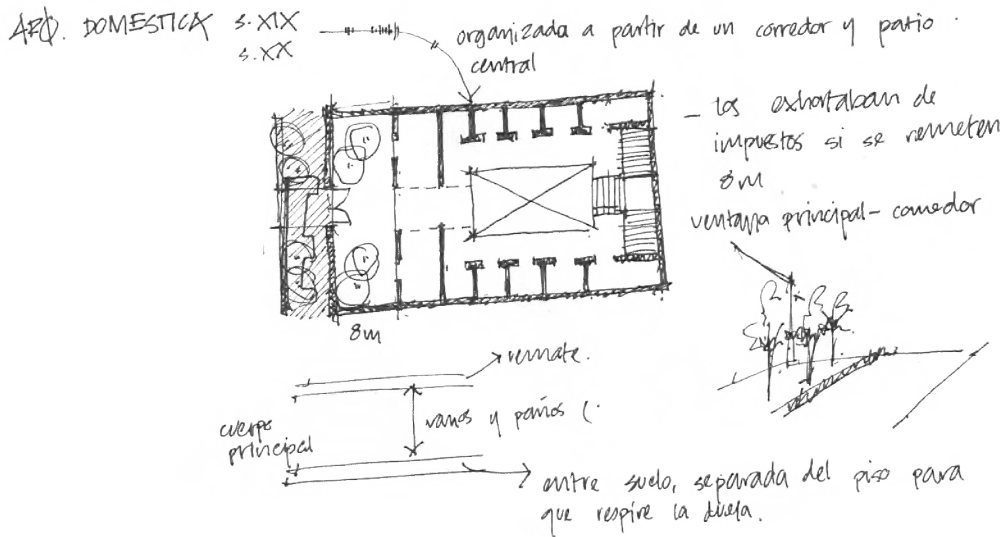 ARQ. DOMESTICA S. XIX
S. XX
organizada a partir de un corredor y patio
central
- los exhortaban de
impuestos si se remeten
8m
ventana principal - comedor
8m
remate.
vanos y paños (.
cuerpo
principal
entre suelo, separada del piso para
que respire la duela.